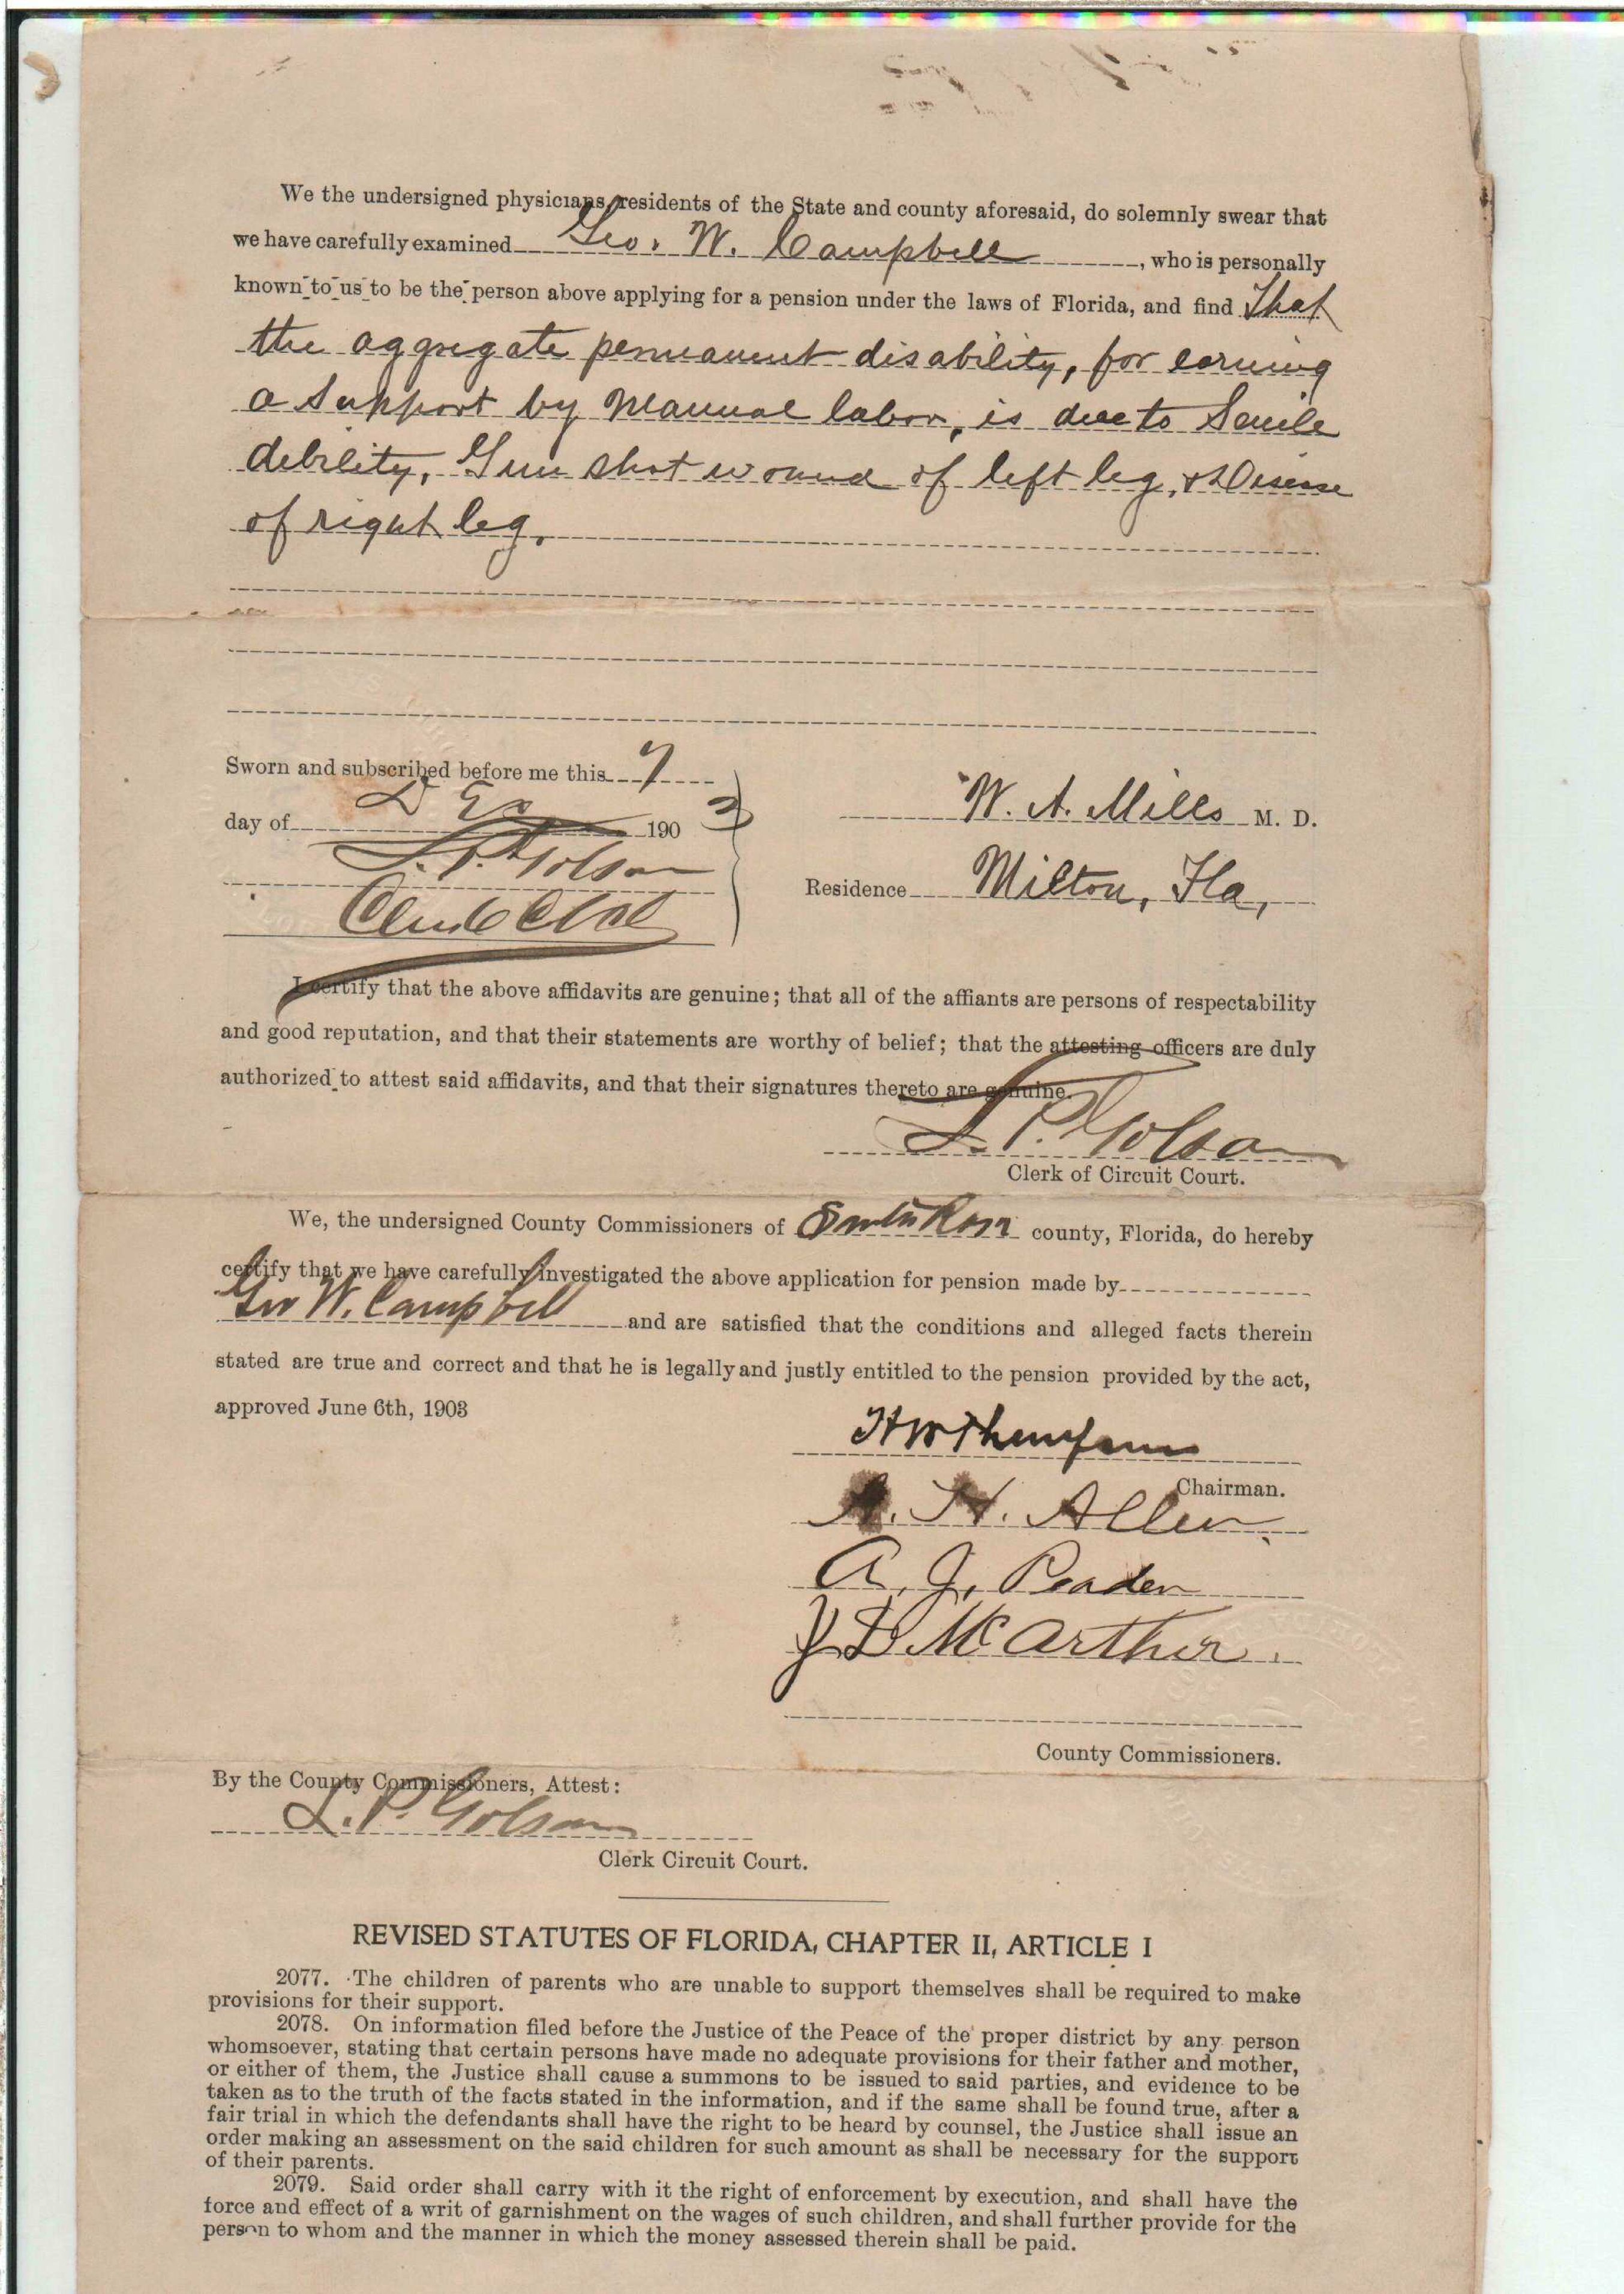 We the undersigned physicians, residents of the State and county aforesaid, do solemnly swear that
we have carefully examined Geo. W. Campbell, who is personally
known to us to be the person above applying for a pension under the laws of Florida, and find That
the aggregate permanent disability, for earning
a support by Manual labor, is due to Senile
debility, Gun shot wound of left leg, & Disease
of right leg.
Sworn and subscribed before me this 7
day of Dec 1903
L. P. Golson
Clerk
W. A. Mills M. D.
Residence Milton, Fla,
I certify that the above affidavits are genuine; that all of the affiants are persons of respectability
and good reputation, and that their statements are worthy of belief; that the attesting officers are duly
authorized to attest said affidavits, and that their signatures thereto are genuine.
L. P. Golson
Clerk of Circuit Court.
We, the undersigned County Commissioners of Santa Rosa county, Florida, do hereby
certify that we have carefully investigated the above application for pension made by
Geo W. Campbell and are satisfied that the conditions and alleged facts therein
stated are true and correct and that he is legally and justly entitled to the pension provided by the act,
approved June 6th, 1903
H W Thompson
Chairman.
A. H. Allen.
A. J. Peaden
J D McArthur.
County Commissioners.
By the County Commissioners, Attest:
L. P. Golson
Clerk Circuit Court.
REVISED STATUTES OF FLORIDA, CHAPTER II, ARTICLE I
2077. The children of parents who are unable to support themselves shall be required to make
provisions for their support.
2078. On information filed before the Justice of the Peace of the proper district by any person
whomsoever, stating that certain persons have made no adequate provisions for their father and mother,
or either of them, the Justice shall cause a summons to be issued to said parties, and evidence to be
taken as to the truth of the facts stated in the information, and if the same shall be found true, after a
fair trial in which the defendants shall have the right to be heard by counsel, the Justice shall issue an
order making an assessment on the said children for such amount as shall be necessary for the support
of their parents.
2079. Said order shall carry with it the right of enforcement by execution, and shall have the
force and effect of a writ of garnishment on the wages of such children, and shall further provide for the
person to whom and the manner in which the money assessed therein shall be paid.